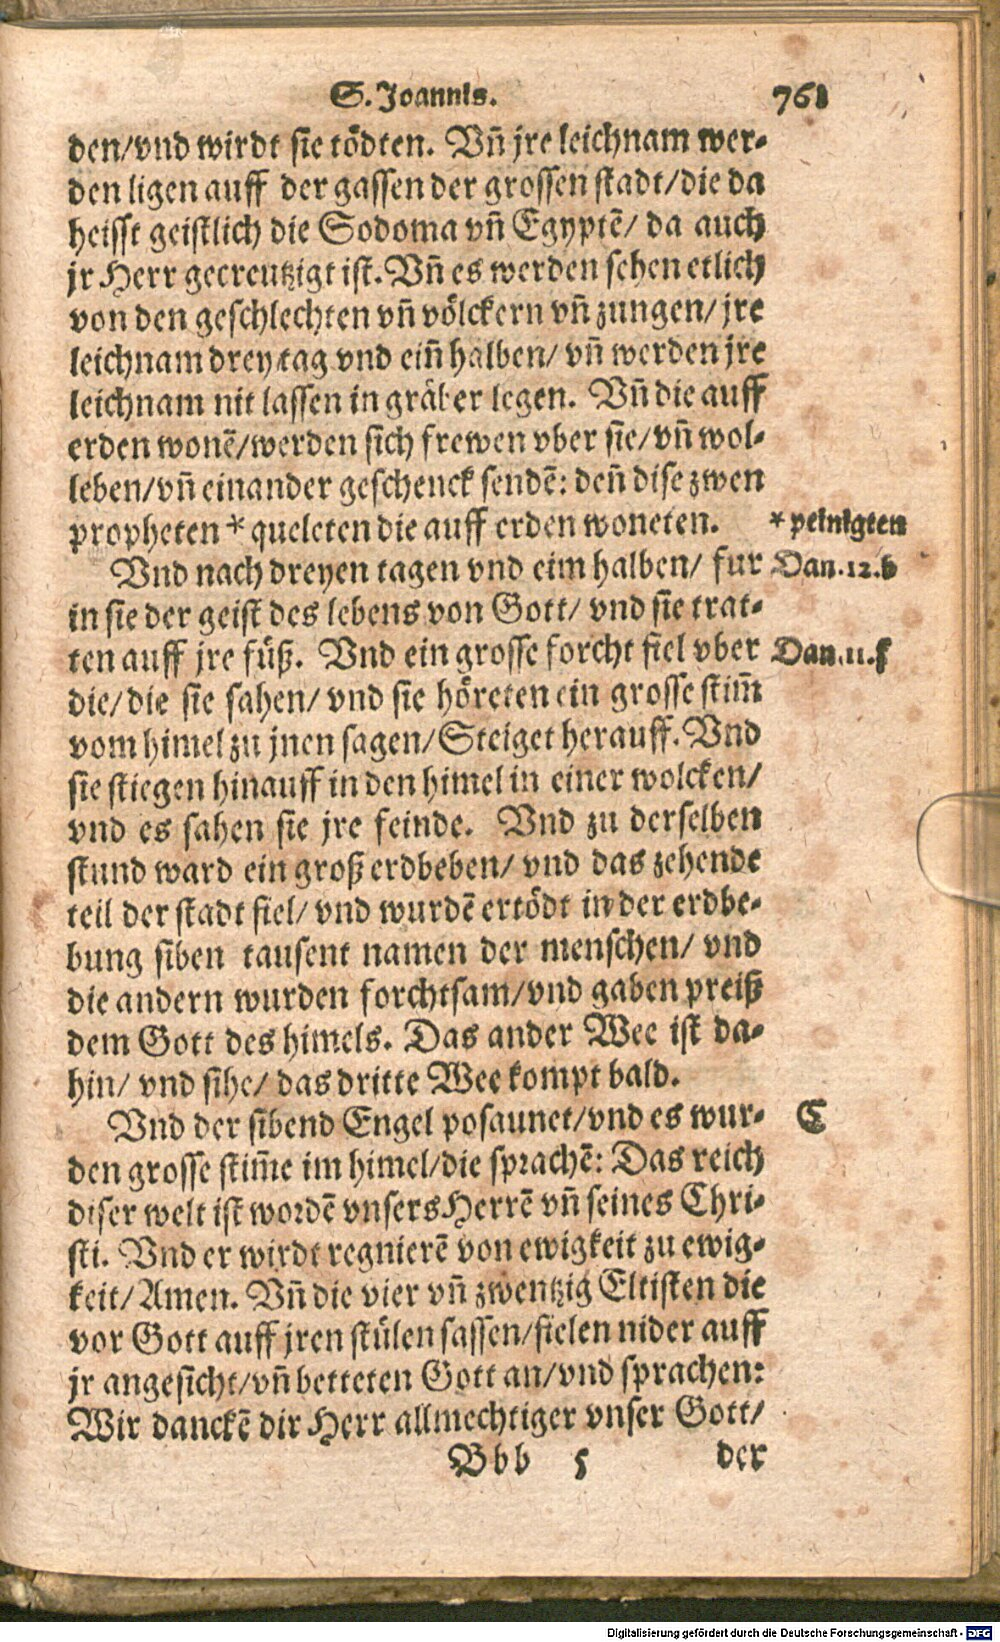 S. Joannis. 761
den/vnd wirdt sie tödten. Vñ jre leichnam wer-
den ligen auff der gassen der grossen stadt/die da
heisst geistlich die Sodoma vñ Egyptē/ da auch
jr Herr gecreutzigt ist. Vñ es werden sehen etlich
von den geschlechten vñ völckern vñ zungen/ jre
leichnam drey tag vnd eiñ halben/ vñ werden jre
leichnam nit lassen in gräber legen. Vñ die auff
erden wonē/werden sich frewen vber sie/vñ wol-
leben/vñ einander geschenck sendē: deñ dise zwen
propheten * queleten die auff erden woneten. * peinigten
Vnd nach dreyen tagen vnd eim halben/ fur Dan.12.b
in sie der geist des lebens von Gott/ vnd sie trat-
ten auff jre füß. Vnd ein grosse forcht fiel vber Dan.11.f
die/die sie sahen/ vnd sie höreten ein grosse stim̃
vom himel zu jnen sagen/Steiget herauff. Vnd
sie stiegen hinauff in den himel in einer wolcken/
vnd es sahen sie jre feinde. Vnd zu derselben
stund ward ein groß erdbeben/ vnd das zehende
teil der stadt fiel/ vnd wurdē ertödt in der erdbe-
bung siben tausent namen der menschen/ vnd
die andern wurden forchtsam/vnd gaben preiß
dem Gott des himels. Das ander Wee ist da-
hin/ vnd sihe/ das dritte Wee kompt bald.
Vnd der sibend Engel posaunet/vnd es wur- C
den grosse stim̃e im himel/die sprachē: Das reich
diser welt ist wordē vnsers Herrē vñ seines Chri-
sti. Vnd er wirdt regnierē von ewigkeit zu ewig-
keit/Amen. Vñ die vier vñ zwentzig Eltisten die
vor Gott auff jren stülen sassen/fielen nider auff
jr angesicht/vñ betteten Gott an/vnd sprachen:
Wir danckē dir Herr allmechtiger vnser Gott/
Bbb 5 der
Digitalisierung gefördert durch die Deutsche Forschungsgemeinschaft - DFG